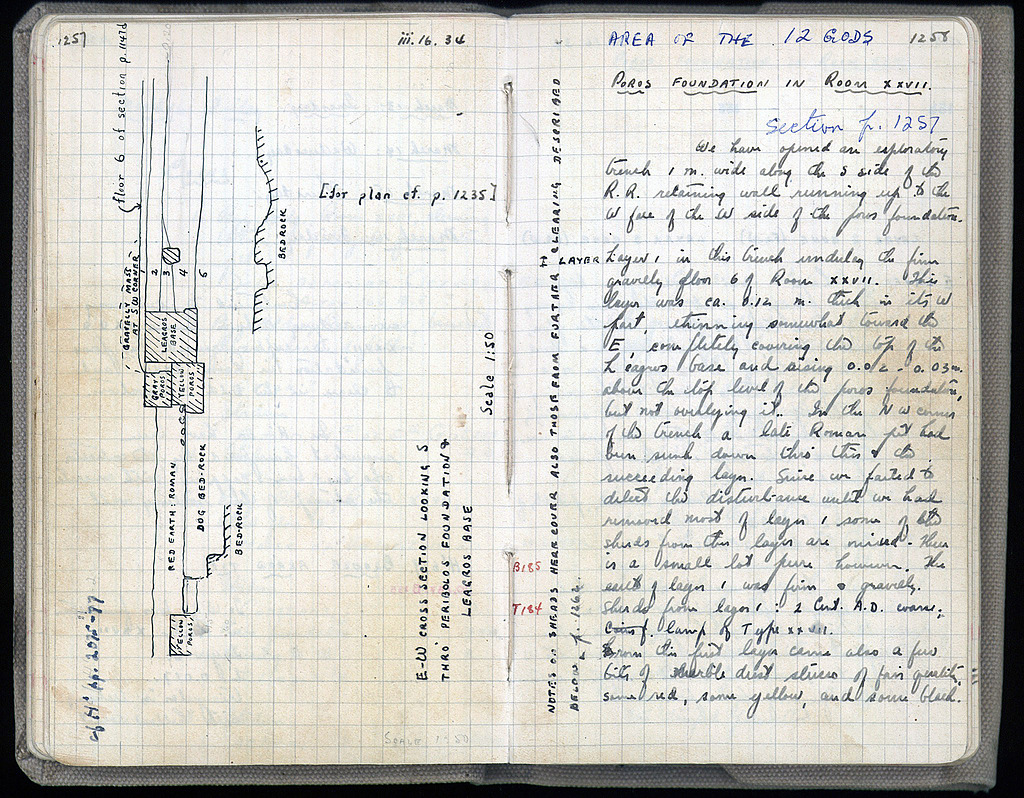 1257
iii.16.34
(floor 6 of section p. 1147d
GRAVELLY MASS
AT SW CORNER
1
2
3
4
5
LEAGROS
BASE
GRAY
POROS
YELLOW
POROS
BEDROCK
[for plan cf. p. 1235]
RED EARTH: ROMAN
DOG BED-ROCK
BED-ROCK
YELLOW
POROS
Scale 1:50
E-W CROSS SECTION LOOKING S
THRO' PERIBOLOS FOUNDATION &
LEAGROS BASE
cf H' pp. 2075-77
SCALE 1:50
AREA OF THE 12 GODS
1258
POROS FOUNDATION IN ROOM XXVII.
Section p. 1257
We have opened an exploratory
trench 1 m. wide along the S side of the
R.R. retaining wall running up to the
W face of the W side of the poros foundation.
LAYER 1
Layer 1 in this trench underlay the firm
gravelly floor 6 of Room XXVII. This
layer was ca. 0.12 m. thick in its W
part, thinning somewhat toward the
E, completely covering the top of the
Leagros base and rising 0.02 - 0.03 m.
above the top level of the poros foundation,
but not overlying it. In the NW corner
of the trench a late Roman pit had
been sunk down thro' this & the
succeeding layer. Since we failed to
detect the disturbance until we had
removed most of layer 1 some of the
sherds from this layer are mixed. There
is a small lot pure however. The
earth of layer 1 was firm & gravelly.
B185
T184
Sherds from layer 1: 2 Cent. A.D. coarse;
Conf. lamp of Type XXVII.
From this first layer came also a few
bits of marble dust stucco of fair quality
some red, some yellow, and some black.
NOTES ON SHERDS HERE COVER ALSO THOSE FROM FURTHER CLEARING DESCRIBED
BELOW p. 1262